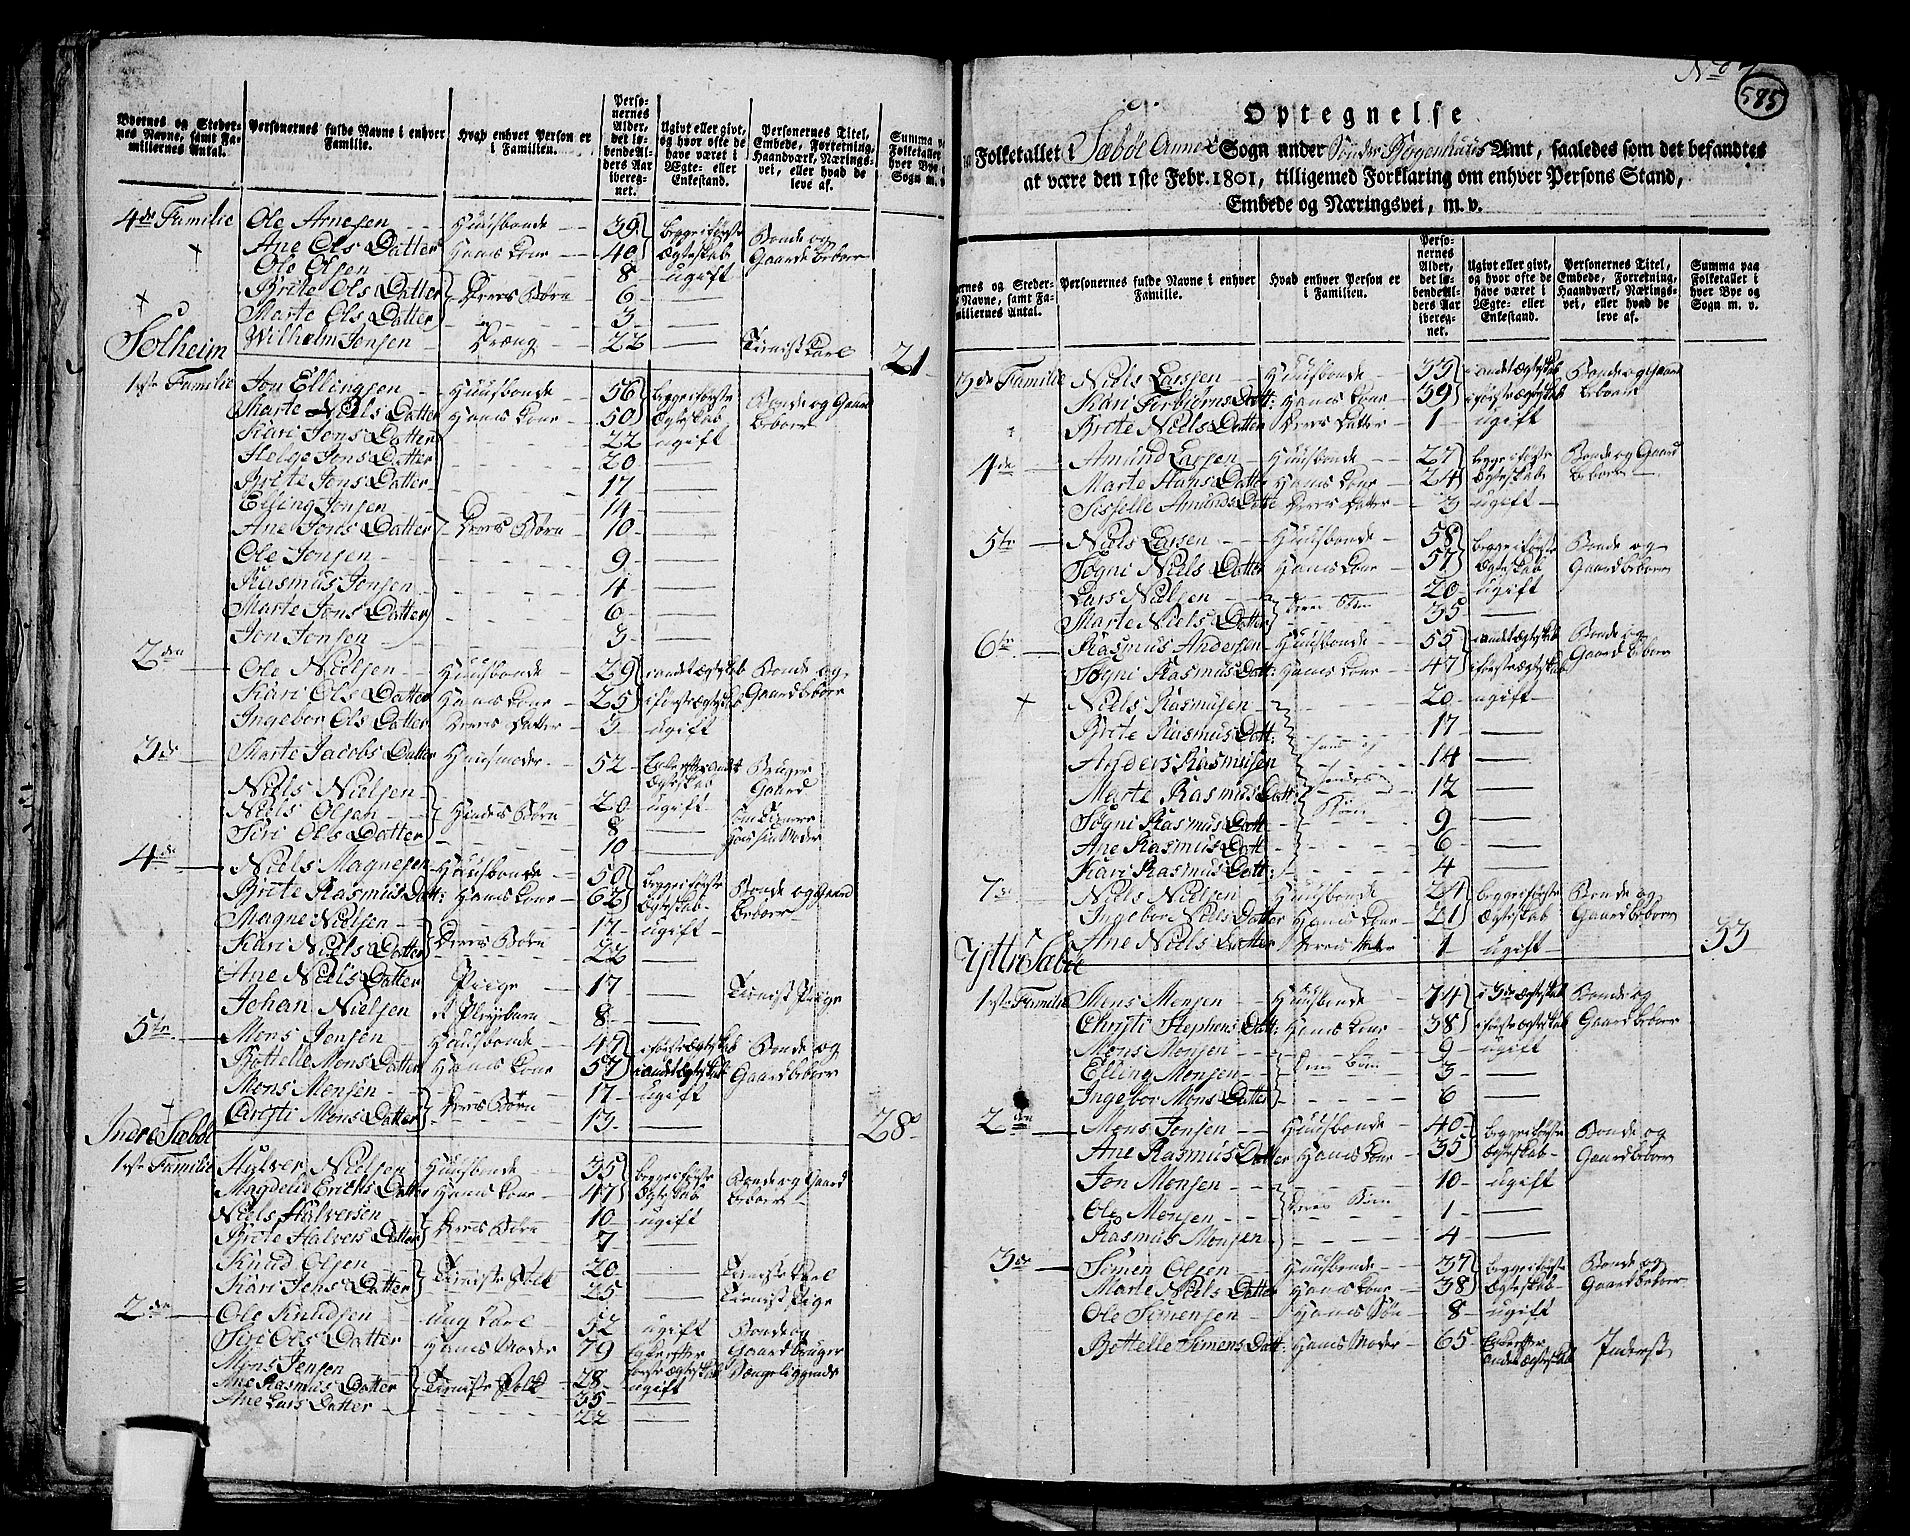 Byernes og Steder-
nes Navne, samt Fa-
miliernes Antal.
Personernes fulde Navne i enhver
Familie.
Hvad enhver Person er
i Familien.
Perso-
nernes
Alder,
det lø-
bende Al-
ders Aar
iberegn-
net.
Ugivt eller givt,
og hvor ofte de
have været i
Ægte- eller
Enkestand.
Personernes Titel,
Embede, Forretning,
Haandværk, Nærings-
vei, eller hvad de
leve af.
Summa
Folketallet
hver Bye
Sogn m. v.
4de Familie Ole Arnesen Huusbonde 39 begge i første Bonde og
Ane Ols Datter Hans Kone 40 Ægteskab Gaardbeboer
Ole Olsen 8 ugift
Brite Ols Datter Deres Børn 6
Marte Ols Datter 3
Wilhelm Jonsen Dreng 22 Tieniste Karl 21
Solheim
1ste Familie Jon Ellingsen Huusbonde 56 begge i første Bonde og Gaard
Marte Niels Datter Hans Kone 50 Ægteskab beboer
Kari Jons Datter 22 ugift
Helge Jons Datter 20
Brite Jons Datter 17
Elling Jonsen 14
Ane Jons Datter Deres Børn 10
Ole Jonsen 9
Rasmus Jonsen 4
Marte Jons Datter 6
Jon Jonsen 3
2den Ole Nielsen Huusbonde 29 i andet Ægteskab Bonde og
Kari Ols Datter Hans Kone 25 i første Ægteskab Gaardbeboer
Ingebor Ols Datter Deres Datter 3 ugift
3de Marte Jacobs Datter Huusmoder 52 Enke efter andet Bruger
Ægteskab Gaard
Niels Nielsen 20 ugift
Niels Olsen Hendes Børn 8
Siri Ols Datter 10
4de Niels Magnesen Huusbonde 50 begge i første Bonde og Gaard
Brite Rasmus Datt: Hans Kone 62 Ægteskab beboer
Magne Nielsen 17 ugift
Kari Niels Datter Deres Børn 22
Ane Niels Datter Piige 17 Tieniste Piige
Johan Nielsen Pleyebarn 8
5te Mons Jonsen Huusbonde 47 i første Ægteskab Bonde og
Bottelle Mons Datter Hans Kone 57 i andet Ægteskab Gaardbeboer
Mons Monsen 17 ugift
Christi Mons Datter Deres Børn 13 28
Indre Sæbøe
1ste Familie Halver Nielsen Huusbonde 35 begge i første Bonde og Gaard
Magdelie Erichs Datter Hans Kone 47 Ægteskab beboer
Niels Halversen 10 ugift
Brite Halvers Datter Deres Børn 7
Knud Olsen 20 Tieniste Karl
Kari Jens Datter Tieniste Folk 25 Tieniste Piige
2den Ole Knudsen Ung Karl 52 ugift Bonde og
Siri Ols Datter Hans Moder 79 Enke efter Gaardbruger
Mons Jensen 28 første Ægteskab Sængeliggende
Ane Rasmus Datter Tieniste Folk 35 ugift
Ane Lars Datter 22
No
595
Optegnelse
Folketallet i Sæbøe Annex Sogn under Sønder Bergenhuus Amt, saaledes som det befandtes
at være den 1ste Febr. 1801, tilligemed Forklaring om enhver Persons Stand,
Embede og Næringsvei, m. v.
ernes og Steder-
Navne, samt Fa-
miliernes Antal.
Personernes fulde Navne i enhver
Familie.
Hvad enhver Person er
i Familien.
Perso-
nernes
Alder,
det lø-
bende Al-
ders Aar
ibereg-
net.
Ugivt eller givt,
og hvor ofte de
have været i
Ægte- eller
Enkestand.
Personernes Titel,
Embede, Forretning,
Haandværk, Nærings-
vei, eller hvad de
leve af.
Summa paa
Folketallet i
hver Bye og
Sogn m. v.
3de Familie Niels Larsen Huusbonde 55 i andet Ægteskab Bonde og Gaard
Kari Torbiørns Datt: Hans Kone 39 i første Ægteskab beboer
Brite Niels Datter Deres Datter 1 ugift
4de Amund Larsen Huusbonde 27 begge i første Bonde og Gaard
Marte Hans Datter Hans Kone 24 Ægteskab beboer
Sisselle Amunds Datte Deres Datter 3 ugift
5te Niels Larsen Huusbonde 58 begge i første Bonde og
Søgni Niels Datter Hans Kone 57 Ægteskab Gaardbeboer
Lars Nielsen 20 ugift
Marte Niels Datter Deres Børn 35
6te Rasmus Andersen Huusbonde 55 i andet Ægteskab Bonde og
Søgni Rasmus Datt: Hans Kone 47 i første Ægteskab Gaardbeboer
Niels Rasmusen 20 ugift
Brite Rasmus Datt: 17
Anders Rasmusen Hans og 14
Marte Rasmus Datt: hendes 12
Søgni Rasmus Datt Børn 9
Ane Rasmus Datt 6
Kari Rasmus Datt: 4
7de Niels Nielsen Huusbonde 24 begge i første Bonde og
Ingebor Niels Datter Hans Kone 21 Ægteskab Gaardbeboer
Ane Niels Datter Deres Datter 1 ugift 33
Yttri Sæbøe
1ste Familie Mons Monsen Huusbonde 74 i 3de Ægteskab Bonde og
Christi Stephens Datt: Hans Kone 38 i første Ægteskab Gaardbeboer
Mons Monsen 9 ugift
Elling Monsen Deres Børn 3
Ingebor Mons Datter 6
2den Mons Jonsen Huusbonde 40 begge i første Bonde og
Ane Rasmus Datter Hans Kone 35 Ægteskab Gaardbeboer
Jon Monsen 10 ugift
Ole Monsen Deres Børn 1
Rasmus Monsen 4
3de Simen Olsen Huusbonde 37 begge i første Bonde og
Marte Niels Datter Hans Kone 38 Ægteskab Gaardbeboer
Ole Simensen Hans Søn 8 ugift
Bottelle Simens Datt: Hans Moder 65 Enke efter Inderst
andet Ægteskab